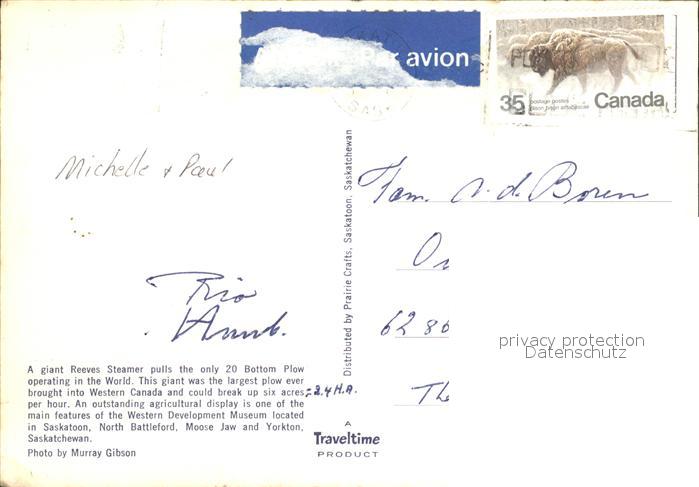 par avion
35
postage postes
Canada
Michelle + Paul
Fam. v.d. Boren
6280
The
A giant Reeves Steamer pulls the only 20 Bottom Plow
operating in the World. This giant was the largest plow ever
brought into Western Canada and could break up six acres
per hour. An outstanding agricultural display is one of the
main features of the Western Development Museum located
in Saskatoon, North Battleford, Moose Jaw and Yorkton,
Saskatchewan.
Photo by Murray Gibson
= 2.4 H.A.
Distributed by Prairie Crafts, Saskatoon, Saskatchewan
A
Traveltime
PRODUCT
privacy protection
Datenschutz